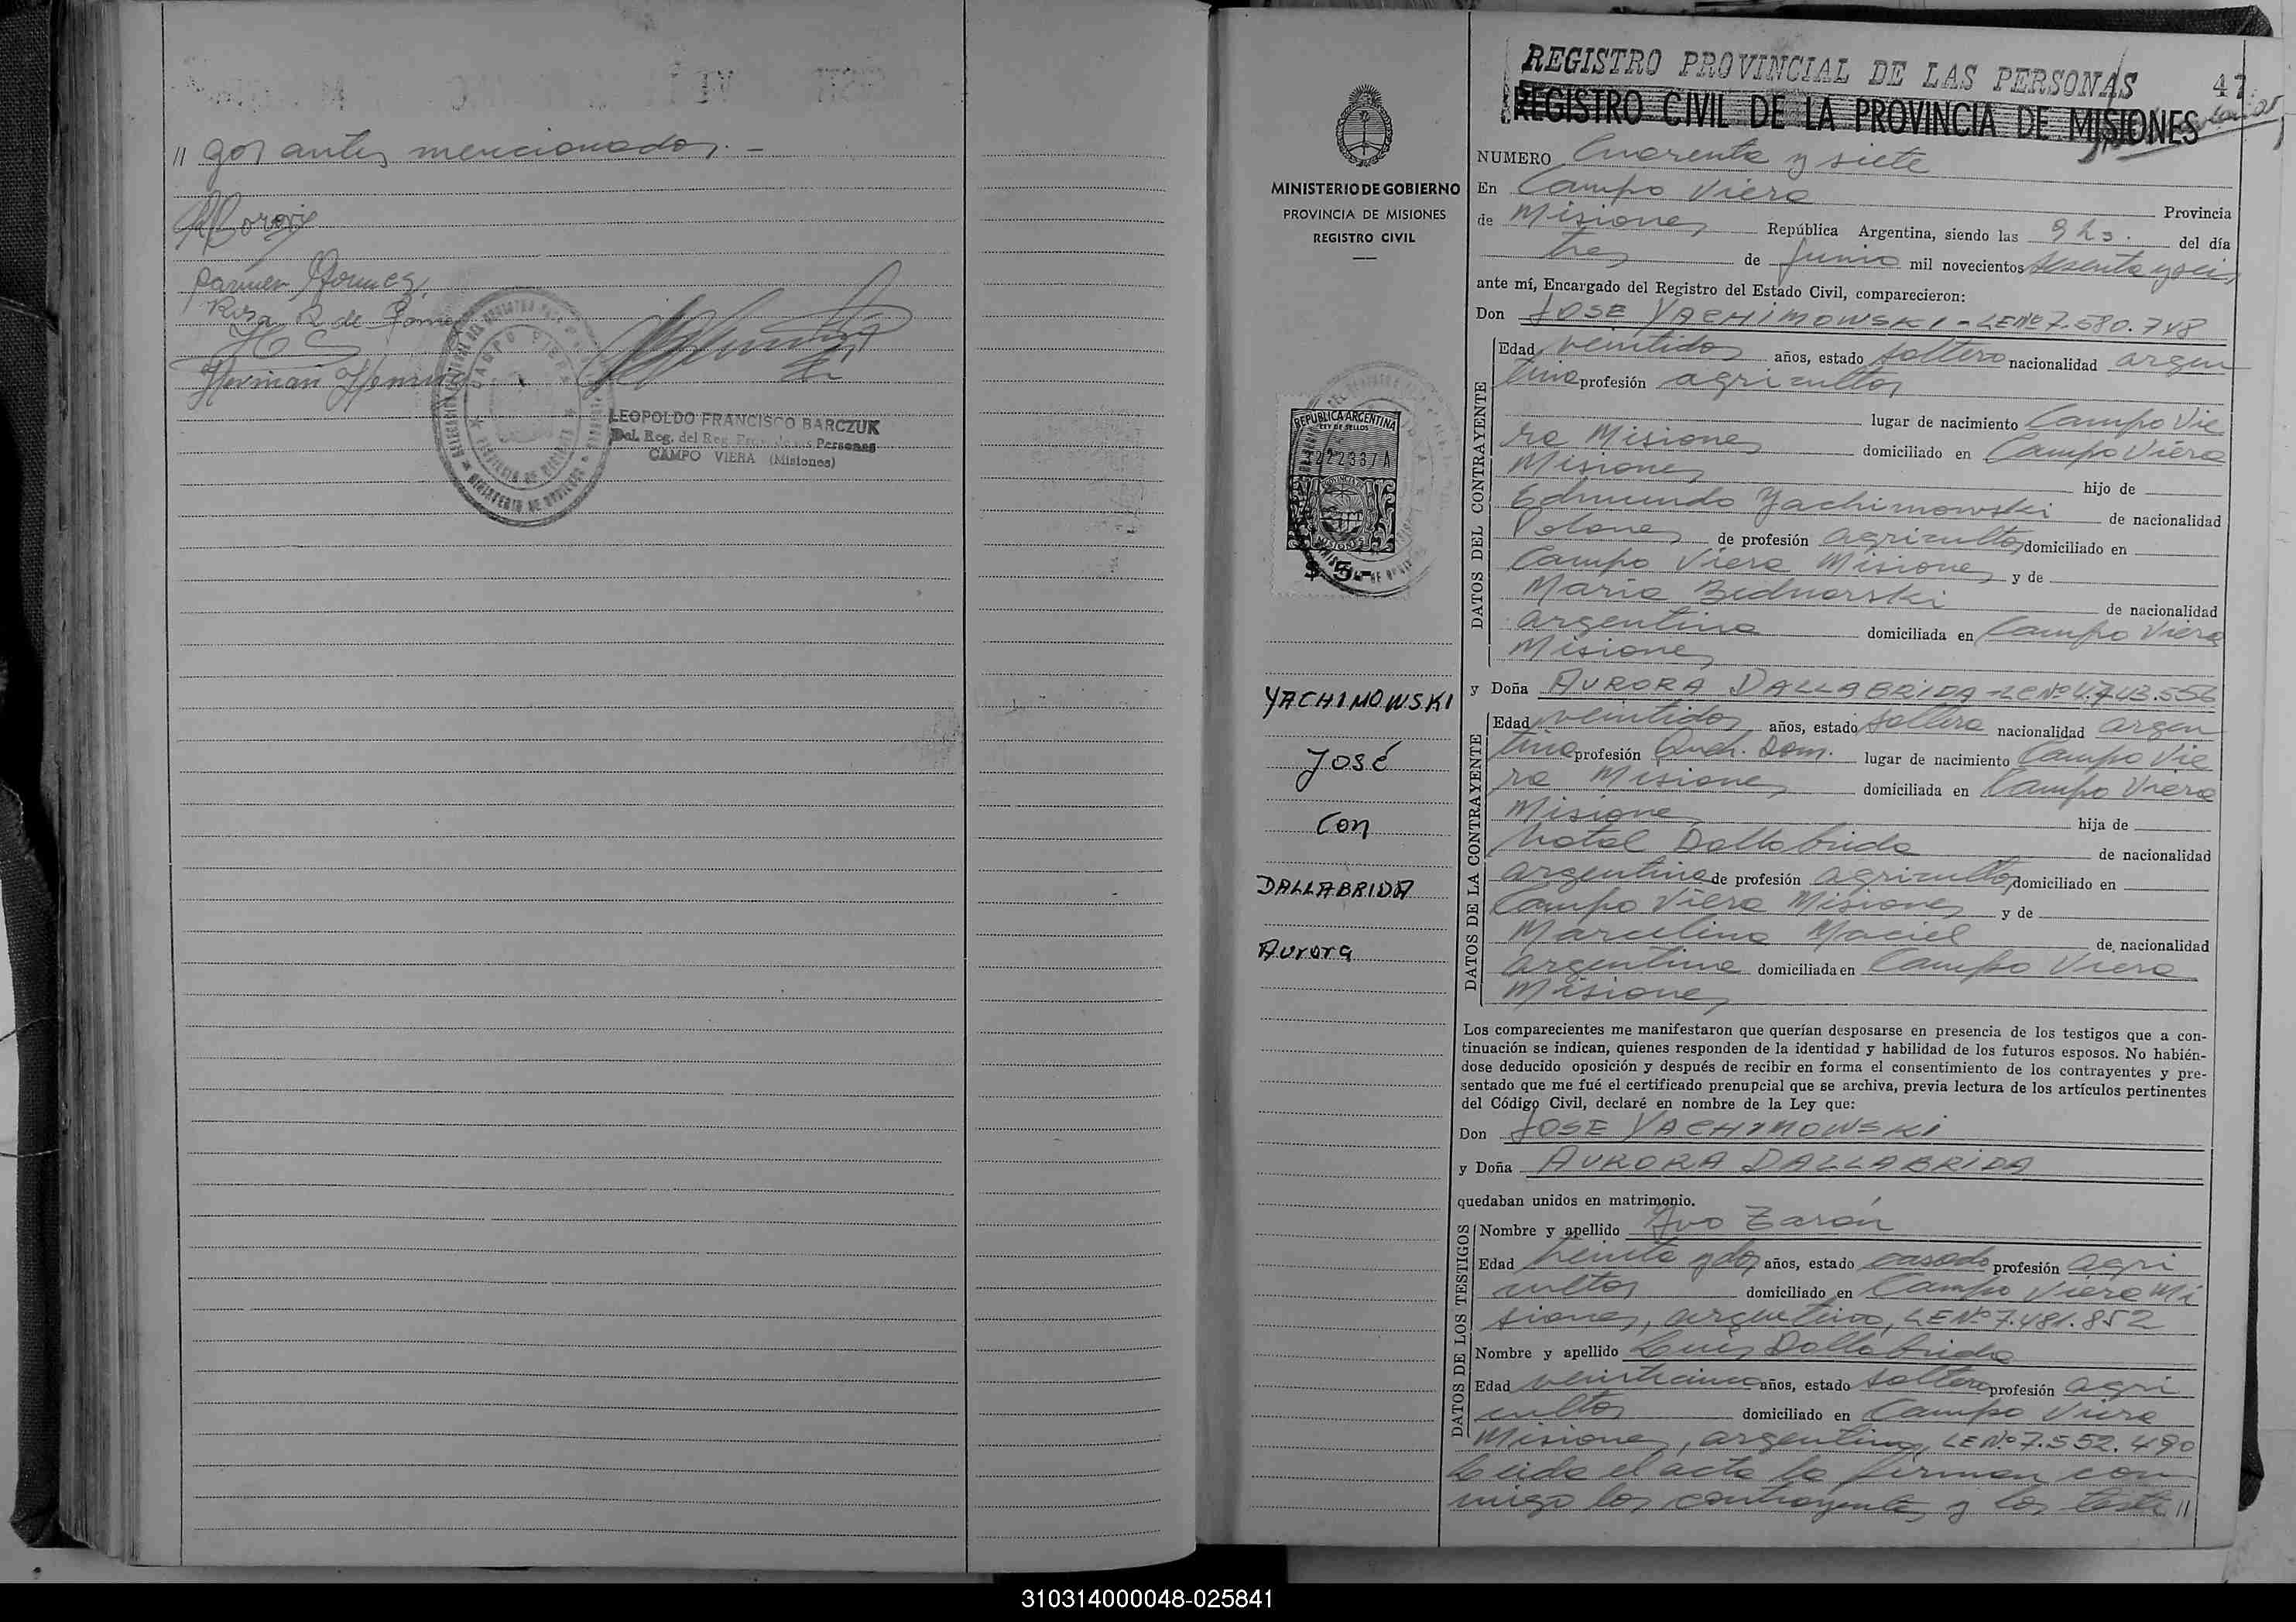 // gos antes mencionados. -
Rosa R de Gome
Hernan
LEOPOLDO FRANCISCO BARCZUK
Del. Reg. del Reg. Prov. de las Personas
CAMPO VIERA (Misiones)
REGISTRO PROVINCIAL DE LAS PERSONAS
47
REGISTRO CIVIL DE LA PROVINCIA DE MISIONES
MINISTERIO DE GOBIERNO
PROVINCIA DE MISIONES
REGISTRO CIVIL
REPUBLICA ARGENTINA
LEY DE SELLOS
MISIONES
YACHIMOWSKI
José
Con
DALLABRIDA
Aurora
NUMERO Cuarenta y siete
En Campo Viera Provincia
de Misiones República Argentina, siendo las 9 hs. del día
tres de Junio mil novecientos sesenta y seis
ante mí, Encargado del Registro del Estado Civil, comparecieron:
Don JOSE YACHIMOWSKI - LENº 7.580.748
DATOS DEL CONTRAYENTE
Edad veintidos años, estado soltero nacionalidad argen
tina profesión agricultor
lugar de nacimiento Campo Vie
ra Misiones domiciliado en Campo Viera
Misiones hijo de
Edmundo Yachimowski de nacionalidad
Polones de profesión agricultor domiciliado en
Campo Viera Misiones y de
Maria Bednarski de nacionalidad
argentina domiciliada en Campo Viera
Misiones
y Doña AURORA DALLABRIDA - LC Nº 4.743.556
DATOS DE LA CONTRAYENTE
Edad veintidos años, estado soltera nacionalidad argen
tina profesión Queh. Dom. lugar de nacimiento Campo Vie
ra Misiones domiciliada en Campo Viera
Misiones hija de
Natal Dallabrida de nacionalidad
argentina de profesión agricultor domiciliado en
Campo Viera Misiones y de
Marcelina Maciel de nacionalidad
argentina domiciliada en Campo Viera
Misiones
Los comparecientes me manifestaron que querían desposarse en presencia de los testigos que a con-
tinuación se indican, quienes responden de la identidad y habilidad de los futuros esposos. No habién-
dose deducido oposición y después de recibir en forma el consentimiento de los contrayentes y pre-
sentado que me fué el certificado prenupcial que se archiva, previa lectura de los artículos pertinentes
del Código Civil, declaré en nombre de la Ley que:
Don JOSE YACHIMOWSKI
y Doña AURORA DALLABRIDA
quedaban unidos en matrimonio.
DATOS DE LOS TESTIGOS
Nombre y apellido Ivo Zarón
Edad treinta y dos años, estado casado profesión agri
cultor domiciliado en Campo Viera Mi
siones, argentino, LE Nº 7.481.852
Nombre y apellido Luis Dallabrida
Edad veinticinco años, estado soltero profesión agri
cultor domiciliado en Campo Viera
Misiones, argentino, LE Nº 7.552.490
Leida el acta la firman con
migo los contrayentes y los testi //
310314000048-025841